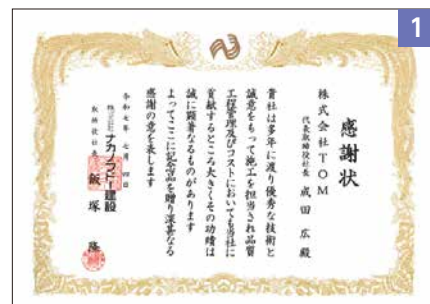 1
感謝状
株式会社TOM
代表取締役社長 成田 広 殿
貴社は多年に渡り優秀な技術と
誠意をもって施工を担当され品質
工程管理及びコストにおいても当社に
貢献するところ大きくその功績は
誠に顕著なものがあります
よってここに記念品を贈り深甚なる
感謝の意を表します
令和七年 七月 四日
株式会社ナカノフドー建設
取締役社長 飯塚 隆